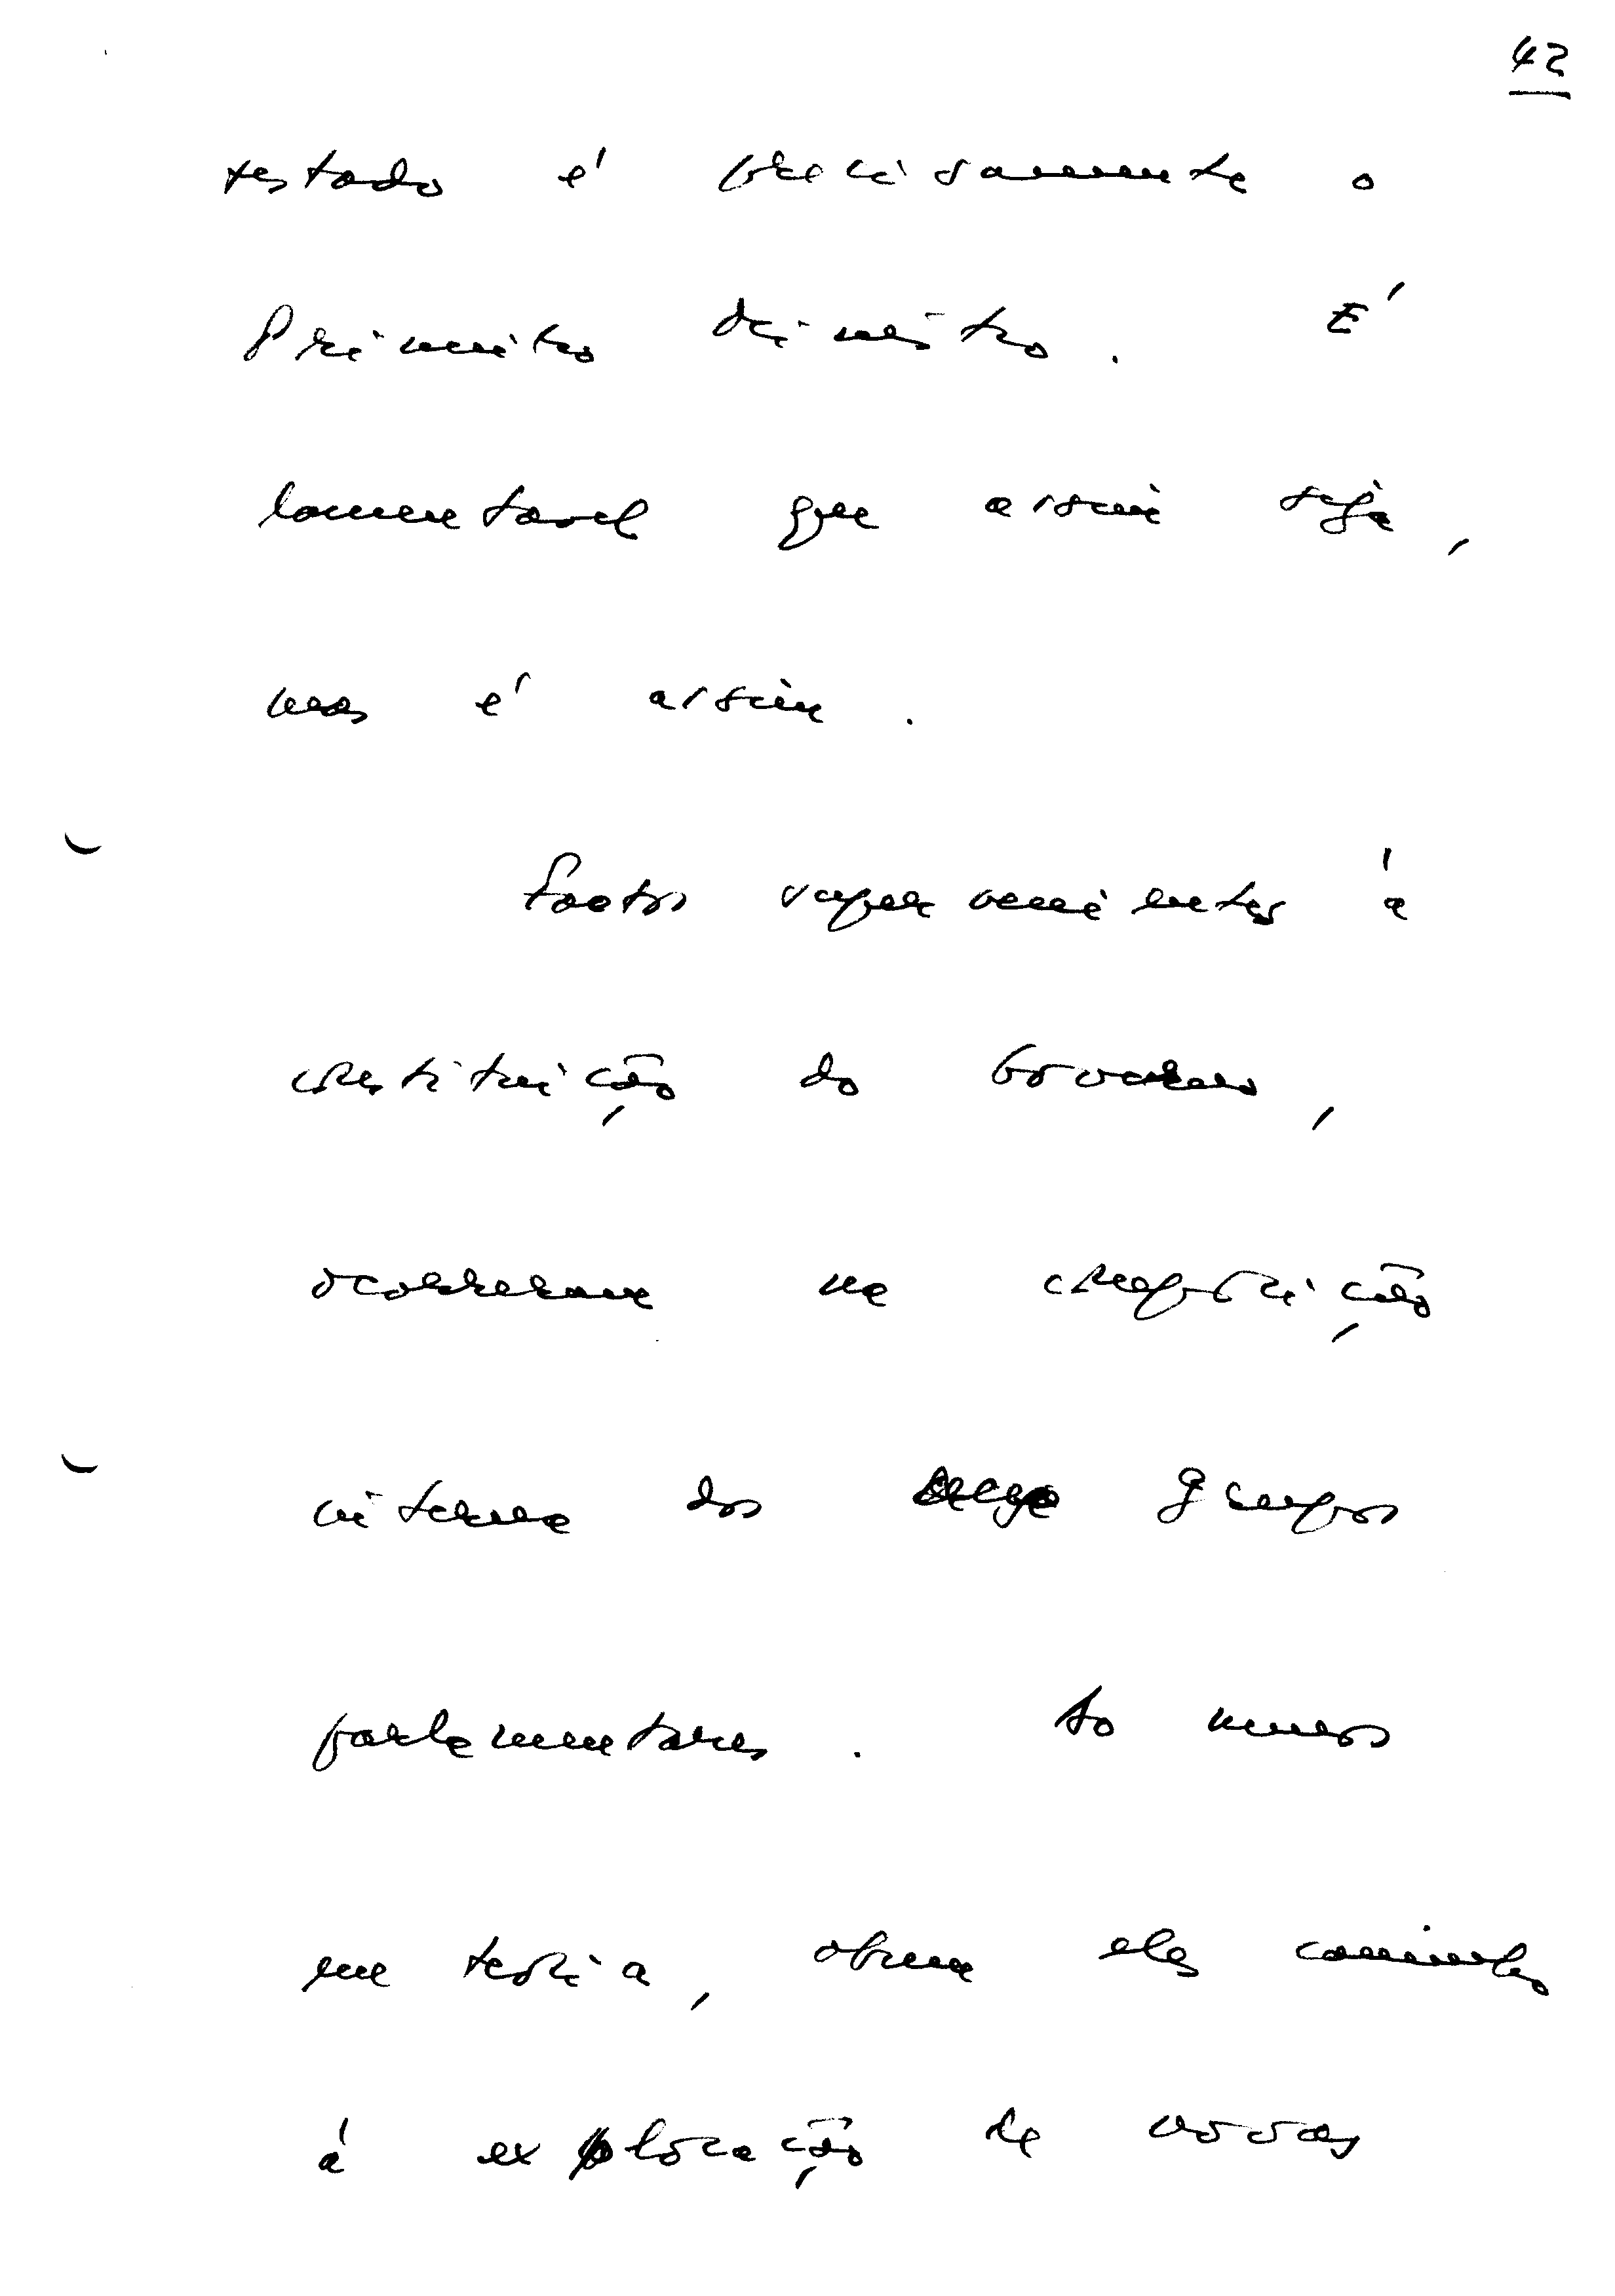 42
testado é precisamente o
Primeiro Ministro. É
lamentavel que assim seja,
mas é assim.
Factos supervenientes á
constituição do Governo,
ocorreram na composição
interna dos grupos
parlamentares. Ao menos
em teoria, abrem eles caminho
á exploração de novas